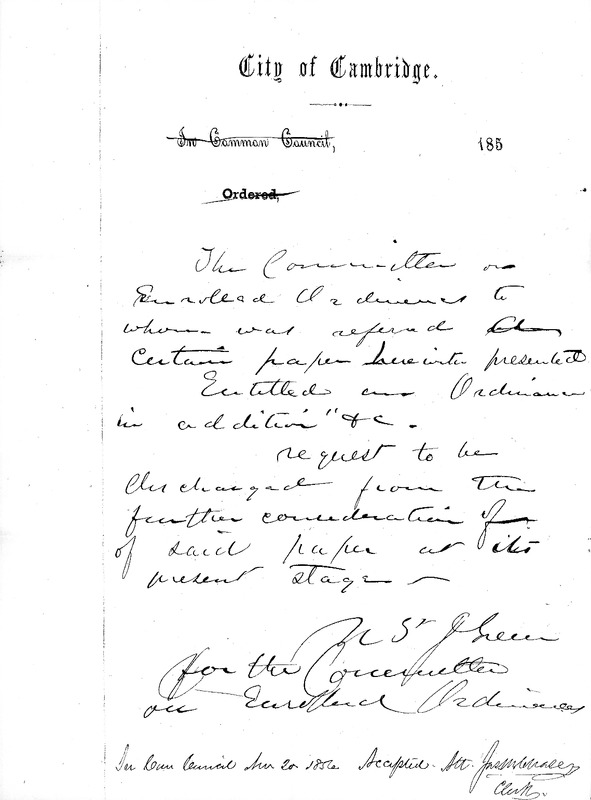 City of Cambridge.
In Common Council, 185
Ordered,
The Committee on
Enrolled Ordinances to
whom was referred a
certain paper herewith presented
Entitled an Ordinance
in addition "&c.
request to be
discharged from the
further consideration of
of said paper at its
present stage
N St J Green
for the Committee
on Enrolled Ordinances
In Com Council 20 1856 Accepted. Att.
Clerk.